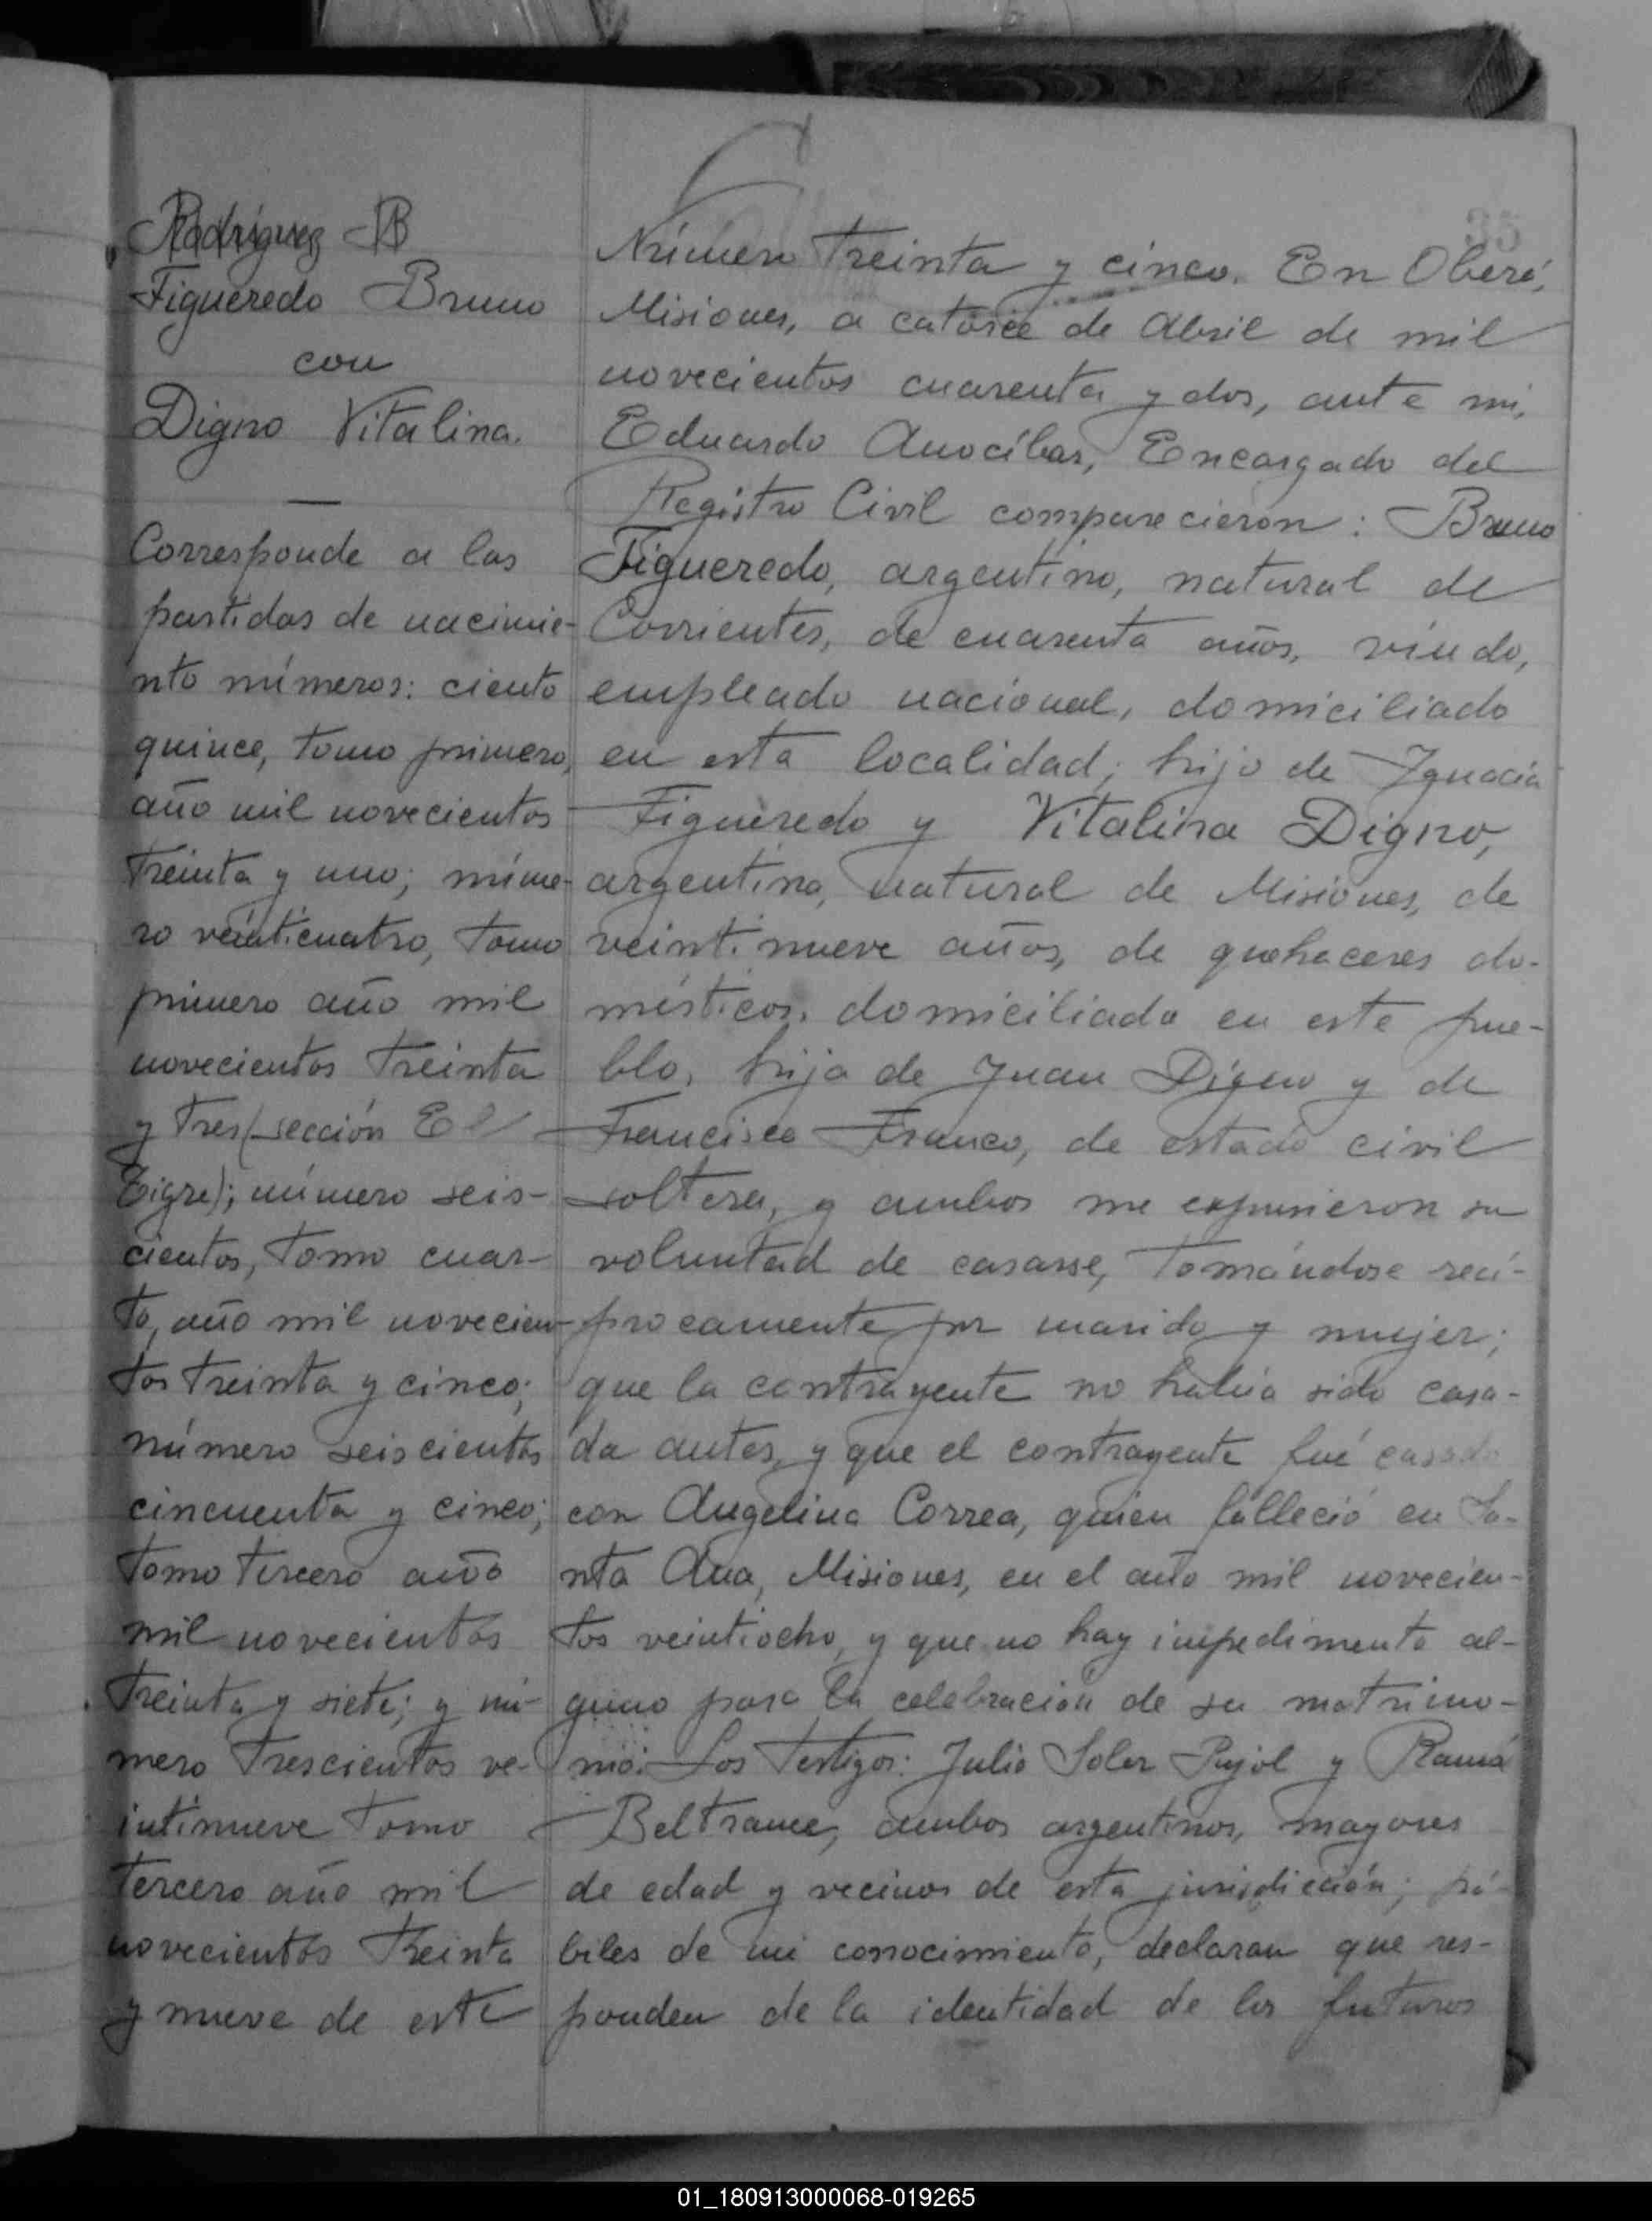 Rodríguez B
Figueredo Bruno
con
Digno Vitalina.
Corresponde a las
partidas de nacimie-
nto números: ciento
quince, tomo primero,
año mil novecientos
treinta y uno; núme-
ro veinticuatro, tomo
primero año mil
novecientos treinta
y tres (sección El
Tigre); número seis-
cientos, tomo cuar-
to, año mil novecien-
tos treinta y cinco;
número seiscientos
cincuenta y cinco;
tomo tercero año
mil novecientos
treinta y siete; y nú-
mero trescientos ve-
intinueve tomo
tercero año mil
novecientos treinta
y nueve de este
35
Número treinta y cinco. En Oberá,
Misiones, a catorce de Abril de mil
novecientos cuarenta y dos, ante mi,
Eduardo Anocíbar, Encargado del
Registro Civil comparecieron: Bruno
Figueredo, argentino, natural de
Corrientes, de cuarenta años, viudo,
empleado nacional, domiciliado
en esta localidad; hijo de Ignacia
Figueredo y Vitalina Digno,
argentina, natural de Misiones, de
veintinueve años, de quehaceres do-
mésticos, domiciliada en este pue-
blo, hija de Juan Digno y de
Francisca Franco, de estado civil
soltera, y ambos me expusieron su
voluntad de casarse, tomándose recí-
procamente por marido y mujer;
que la contrayente no había sido casa-
da antes, y que el contrayente fué casado
con Angelina Correa, quien falleció en Sa-
nta Ana, Misiones, en el año mil novecien-
tos veintiocho, y que no hay impedimento al-
guno para la celebración de su matrimo-
nio. Los testigos: Julio Soler Pujol y Ramón
Beltrame, ambos argentinos, mayores
de edad y vecinos de esta jurisdicción; há-
biles de mi conocimiento, declaran que res-
ponden de la identidad de los futuros
01_180913000068-019265